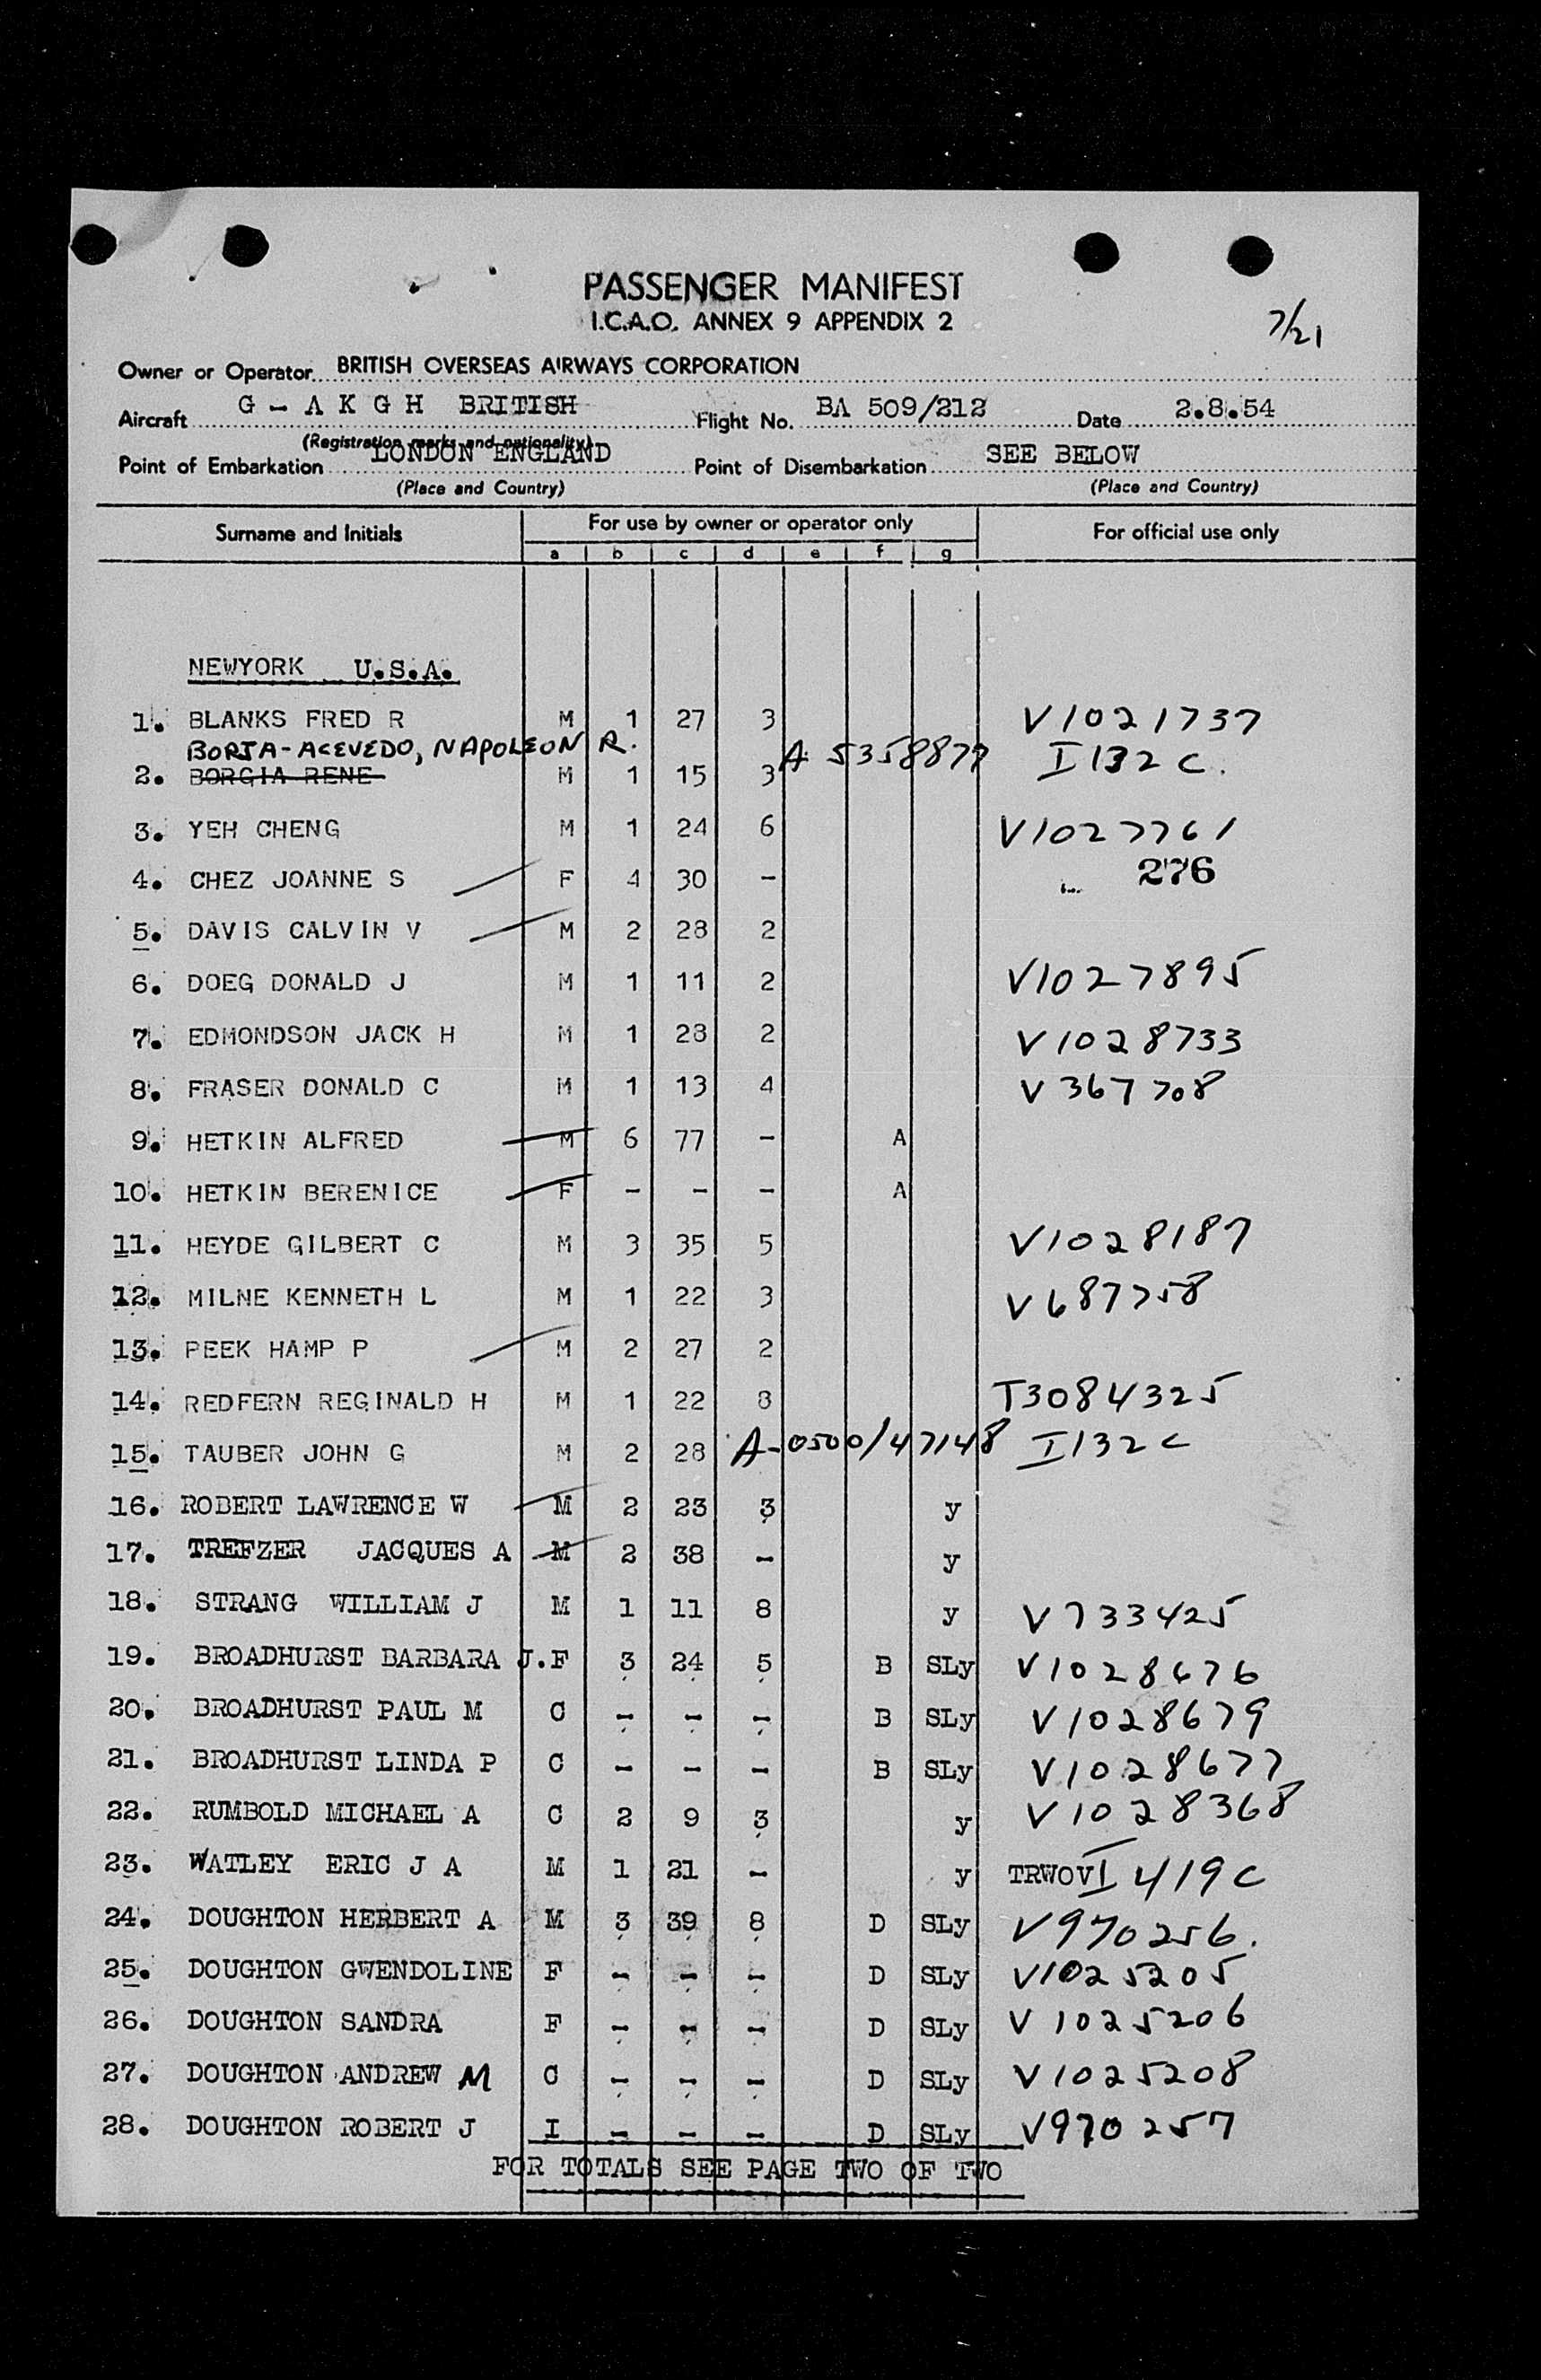 PASSENGER MANIFEST
I.C.A.O. ANNEX 9 APPENDIX 2
7/21
Owner or Operator BRITISH OVERSEAS AIRWAYS CORPORATION
Aircraft G - A K G H BRITISH Flight No. BA 509/212 Date 2.8.54
(Registration marks and nationality)
Point of Embarkation LONDON ENGLAND Point of Disembarkation SEE BELOW
(Place and Country) (Place and Country)
Surname and Initials For use by owner or operator only For official use only
a b c d e f g
NEWYORK U.S.A.
1. BLANKS FRED R M 1 27 3 V1021737
BORJA-ACEVEDO, NAPOLEON R. A 5358877 I132C.
2. BORGIA RENE M 1 15 3
3. YEH CHENG M 1 24 6 V1027761
4. CHEZ JOANNE S F 4 30 - 276
5. DAVIS CALVIN V M 2 28 2
6. DOEG DONALD J M 1 11 2 V1027895
7. EDMONDSON JACK H M 1 28 2 V1028733
8. FRASER DONALD C M 1 13 4 V367708
9. HETKIN ALFRED M 6 77 - A
10. HETKIN BERENICE F - - - A
11. HEYDE GILBERT C M 3 35 5 V1028187
12. MILNE KENNETH L M 1 22 3 V687758
13. PEEK HAMP P M 2 27 2
14. REDFERN REGINALD H M 1 22 8 T3084325
15. TAUBER JOHN G M 2 28 A-0500/47148 I132C
16. ROBERT LAWRENCE W M 2 23 3 y
17. TREFZER JACQUES A M 2 38 - y
18. STRANG WILLIAM J M 1 11 8 y V733425
19. BROADHURST BARBARA J. F 3 24 5 B SLy V1028676
20. BROADHURST PAUL M C - - - B SLy V1028679
21. BROADHURST LINDA P C - - - B SLy V1028677
22. RUMBOLD MICHAEL A C 2 9 3 y V1028368
23. WATLEY ERIC J A M 1 21 - y TRWOV I 419C
24. DOUGHTON HERBERT A M 3 39 8 D SLy V970256.
25. DOUGHTON GWENDOLINE F - - - D SLy V1025205
26. DOUGHTON SANDRA F - - - D SLy V1025206
27. DOUGHTON ANDREW M C - - - D SLy V1025208
28. DOUGHTON ROBERT J I - - - D SLy V970257
FOR TOTALS SEE PAGE TWO OF TWO